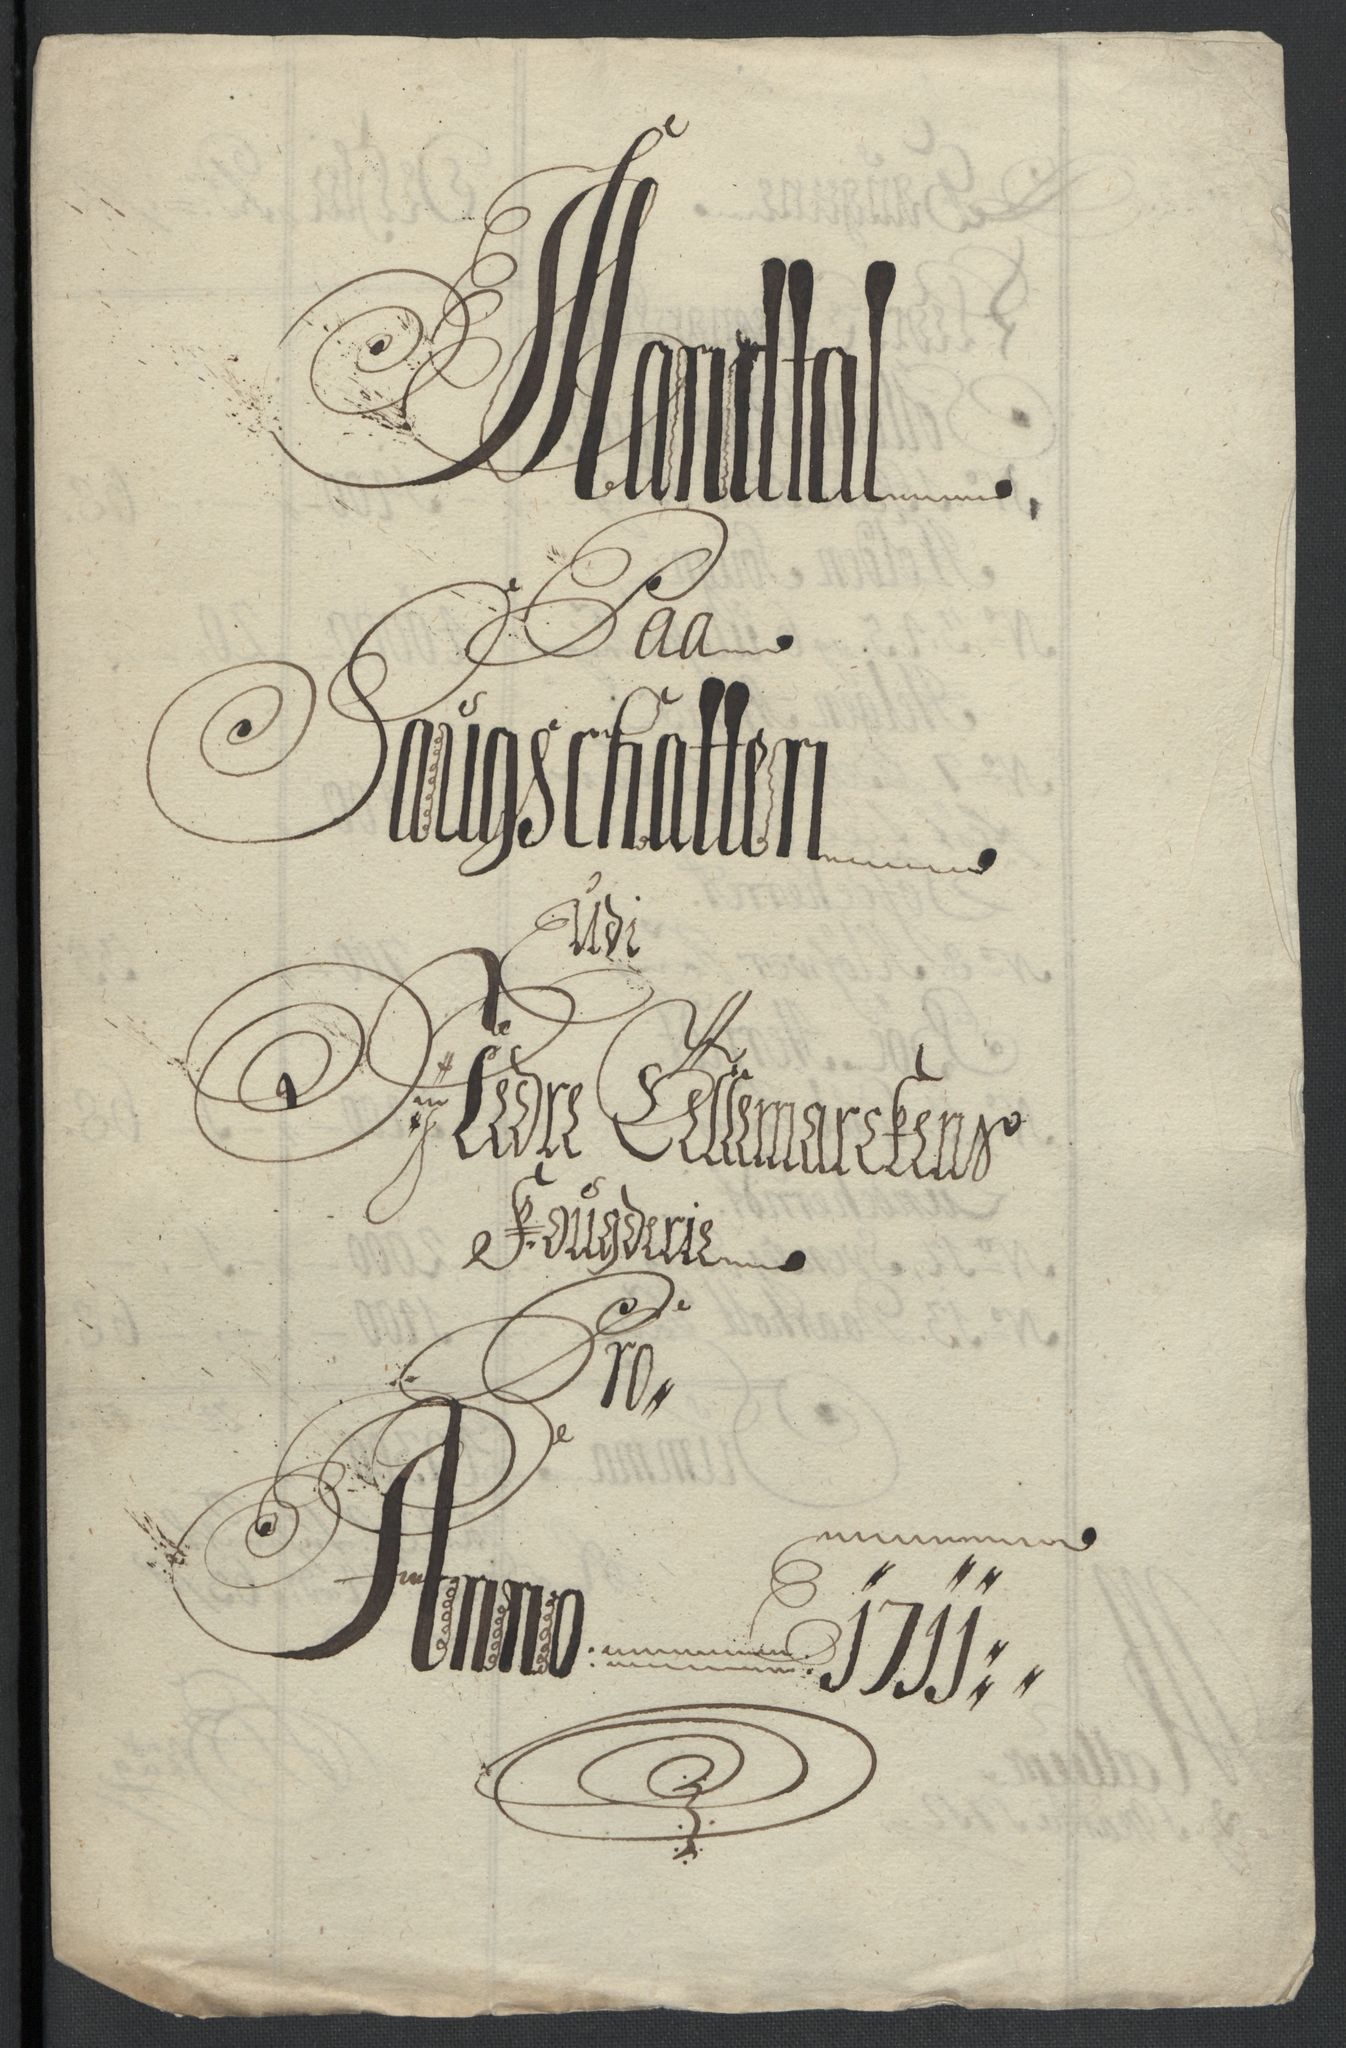 Mandtal
Paa
Saugschatten
Udi
Nedre Tellemarckens
Fougderie
Pro
Anno 1711